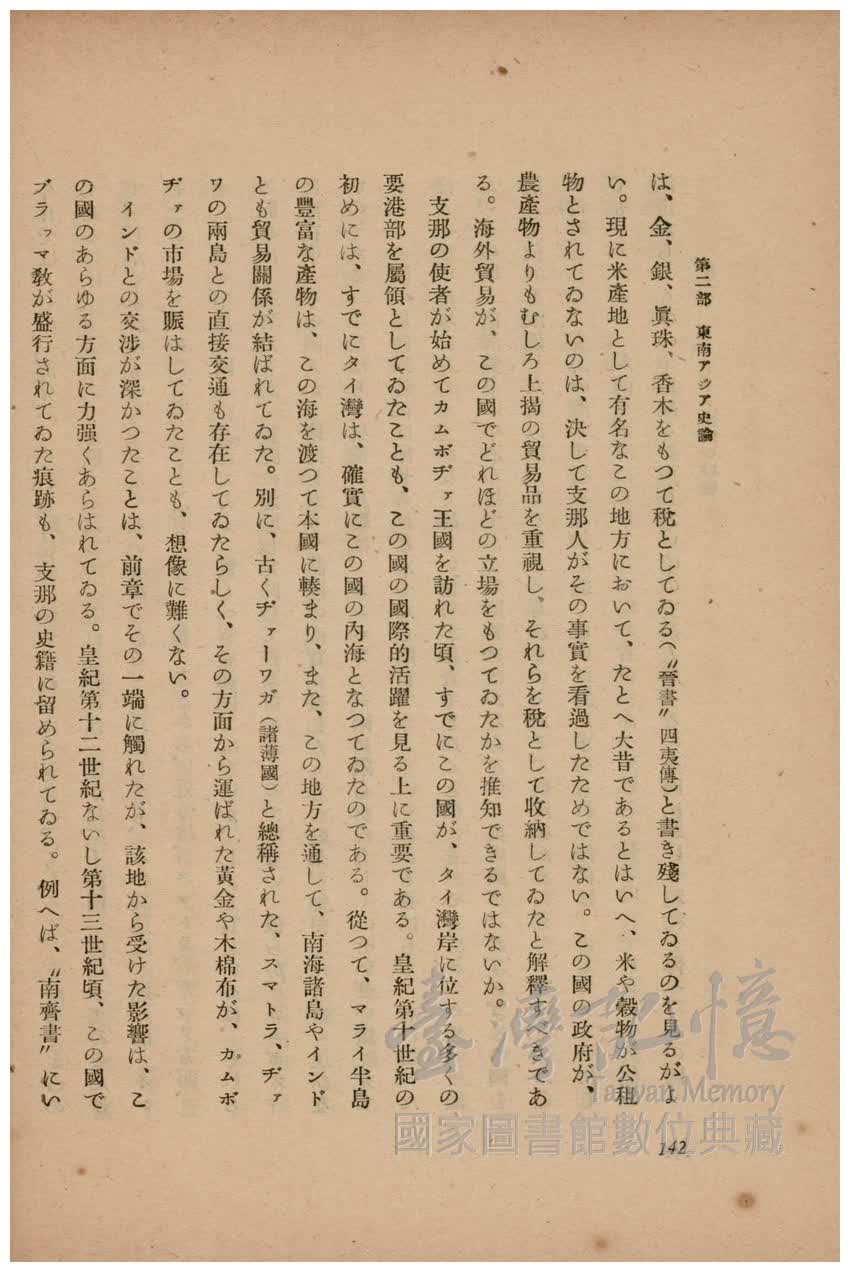 第二部　東南アジア史論
は、金、銀、眞珠、香木をもつて稅としてゐる（〝晉書〟四夷傳）と書き殘してゐるのを見るがよ
い。現に米產地として有名なこの地方において、たとへ大昔であるとはいへ、米や穀物が公租
物とされてゐないのは、決して支那人がその事實を看過したためではない。この國の政府が、
農產物よりもむしろ上揭の貿易品を重視し、それらを稅として收納してゐたと解釋すべきであ
る。海外貿易が、この國でどれほどの立場をもつてゐたかを推知できるではないか。
支那の使者が始めてカムボヂァ王國を訪れた頃、すでにこの國が、タイ灣岸に位する多くの
要港部を屬領としてゐたことも、この國の國際的活躍を見る上に重要である。皇紀第十世紀の
初めには、すでにタイ灣は、確實にこの國の內海となつてゐたのである。從つて、マライ半島
の豐富な產物は、この海を渡つて本國に輳まり、また、この地方を通して、南海諸島やインド
とも貿易關係が結ばれてゐた。別に、古くヂァーワガ（諸薄國）と總稱された、スマトラ、ヂァ
ワの兩島との直接交通も存在してゐたらしく、その方面から運ばれた黃金や木棉布が、カムボ
ヂァの市場を賑はしてゐたことも、想像に難くない。
インドとの交涉が深かつたことは、前章でその一端に觸れたが、該地から受けた影響は、こ
の國のあらゆる方面に力强くあらはれてゐる。皇紀第十二世紀ないし第十三世紀頃、この國で
ブラㇵマ敎が盛行されてゐた痕跡も、支那の史籍に留められてゐる。例へば、〝南齊書〟にい
142
臺灣記憶
Taiwan Memory
國家圖書館數位典藏